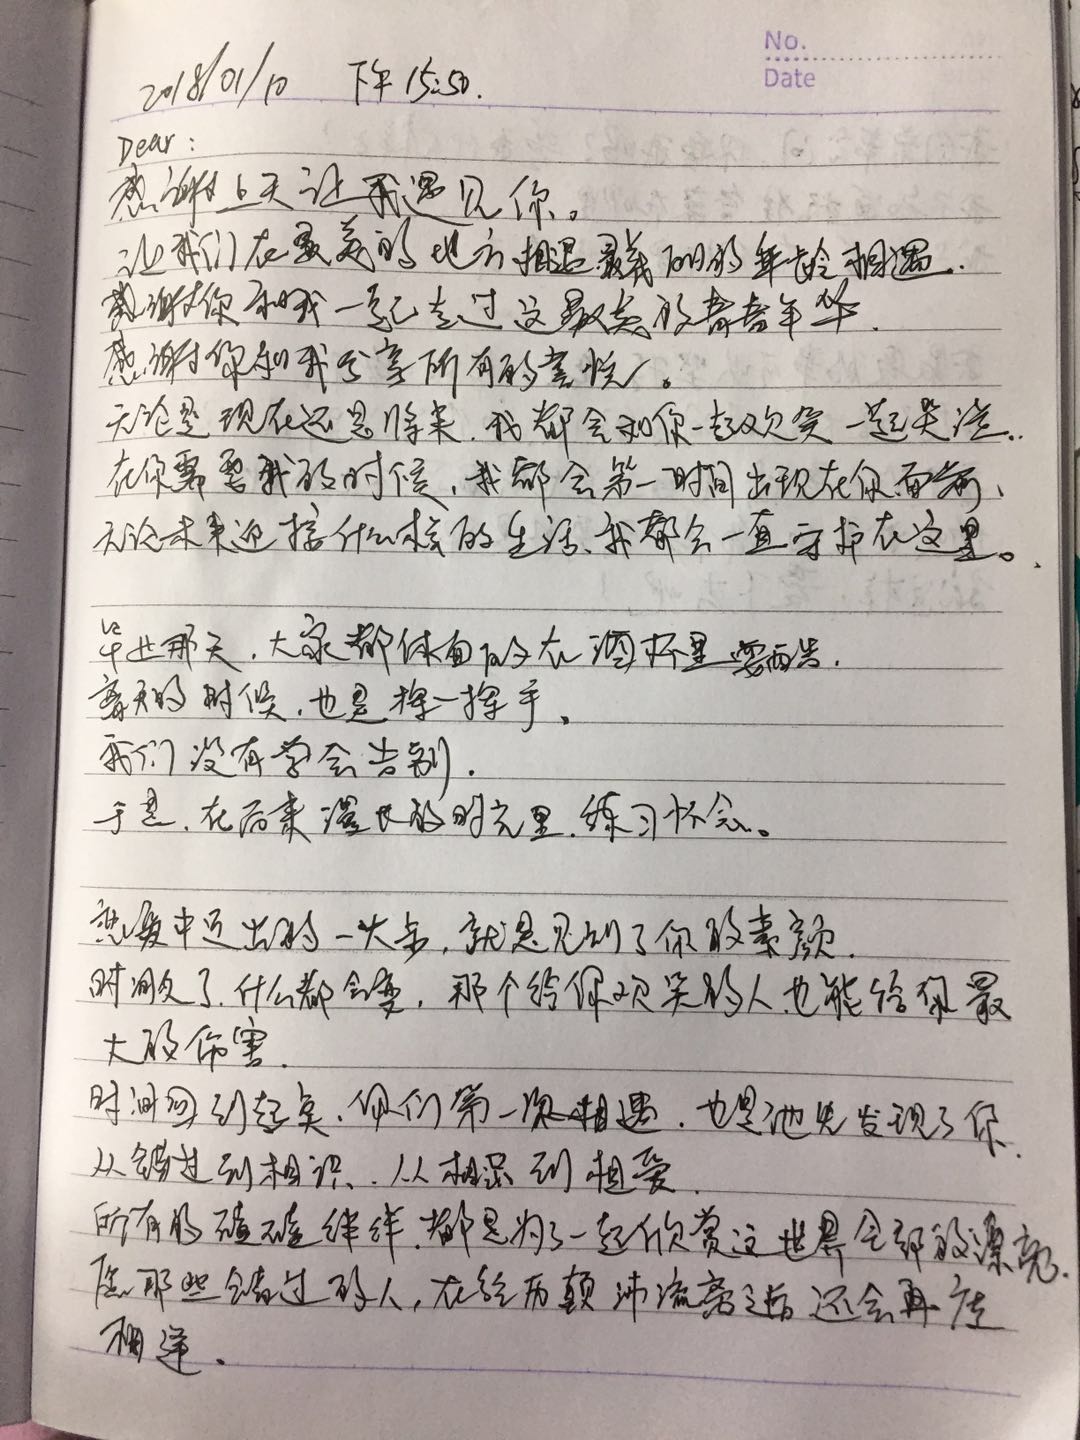 No.
Date
2018/01/10 下午 15:50.
Dear:
感谢上天让我遇见你。
让我们在最美的地方相遇最美丽的年龄相遇.
感谢你和我一起走过这最美的青春年华.
感谢你和我分享所有的喜悦。
无论是现在还是将来,我都会和你一起欢笑一起哭泣.
在你需要我的时候,我都会第一时间出现在你面前、
无论未来迎接什么样的生活、我都会一直守护在这里。
毕业那天,大家都体面的在酒杯里
的时候,也是挥一挥手。
我们没有学会告别.
于是,在后来漫长的时光里,练习怀念。
恋爱中迈出的一大步,就是见到了你的素颜.
时间久了,什么都会变,那个给你欢笑的人也能给你最
大的伤害.
时间回到起点,你们第一次相遇,也是他先发现了你.
从错过到相识、从相识到相爱.
所有的磕磕绊绊,都是为了一起欣赏这世界全部的漂亮.
愿那些错过的人,在经历颠沛流离之后还会再度
相逢。